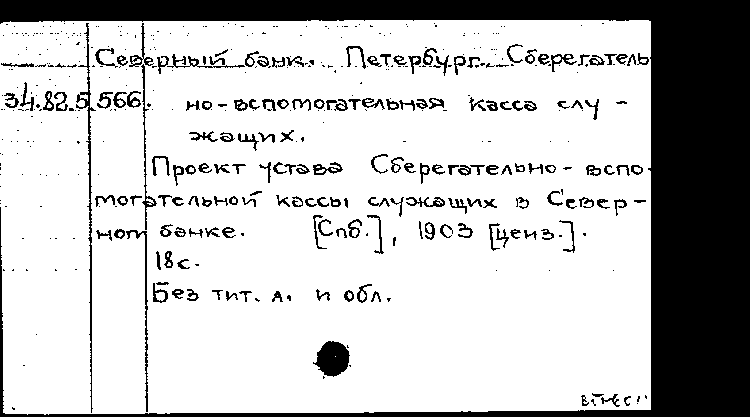 Северный банк. Петербург. Сберегатель
34.82.5.566. но-вспомогательная касса слу-
жащих.
Проект устава Сберегательно-вспо-
могательной кассы служащих в Север-
ном банке. [Спб.], 1903 [ценз.].
18 с.
Без тит. л. и обл.